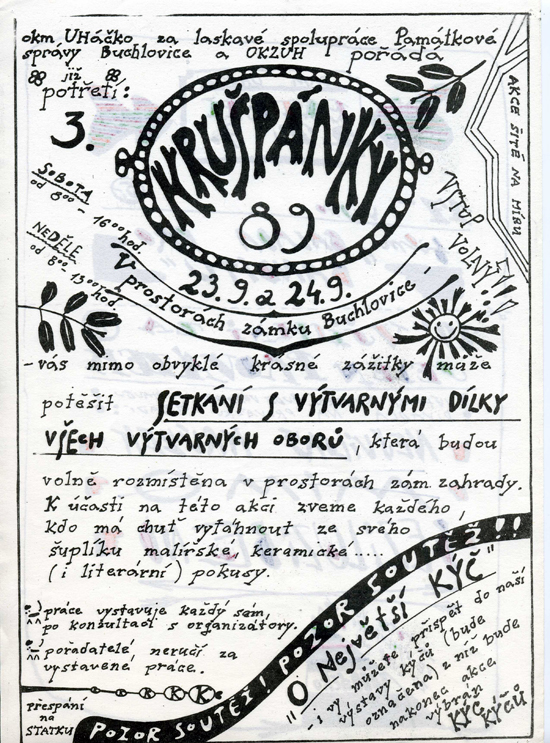 okm UHáčko za laskavé spolupráce Památkové
správy Buchlovice a OKZUH pořádá
již
potřetí:
3.
KRUŠPÁNKY
89
AKCE ŠITÉ NA MÍRU
SOBOTA
od 8⁰⁰ - 16⁰⁰ hod.
NEDĚLE
od 8⁰⁰ 15⁰⁰ hod.
VSTUP
VOLNÝ!!!
23.9. a 24.9.
v prostorách zámku Buchlovice
- vás mimo obvyklé krásné zážitky může
potěšit SETKÁNÍ S VÝTVARNÝMI DÍLKY
VŠECH VÝTVARNÝCH OBORŮ, která budou
volně rozmístěna v prostorách zám. zahrady.
K účasti na této akci zveme každého,
kdo má chuť vytáhnout ze svého
šuplíku malířské, keramické.....
(i literární) pokusy.
práce vystavuje každý sám,
po konzultaci s organizátory.
pořadatelé neručí za
vystavené práce.
PŘESPÁNÍ
NA
STATKU
POZOR SOUTĚŽ! POZOR SOUTĚŽ!!
"O Největší KÝČ"
i vy můžete přispět do naší
výstavy kýčů (bude
označena) z níž bude
nakonec akce
vybrán
KÝČ KÝČŮ